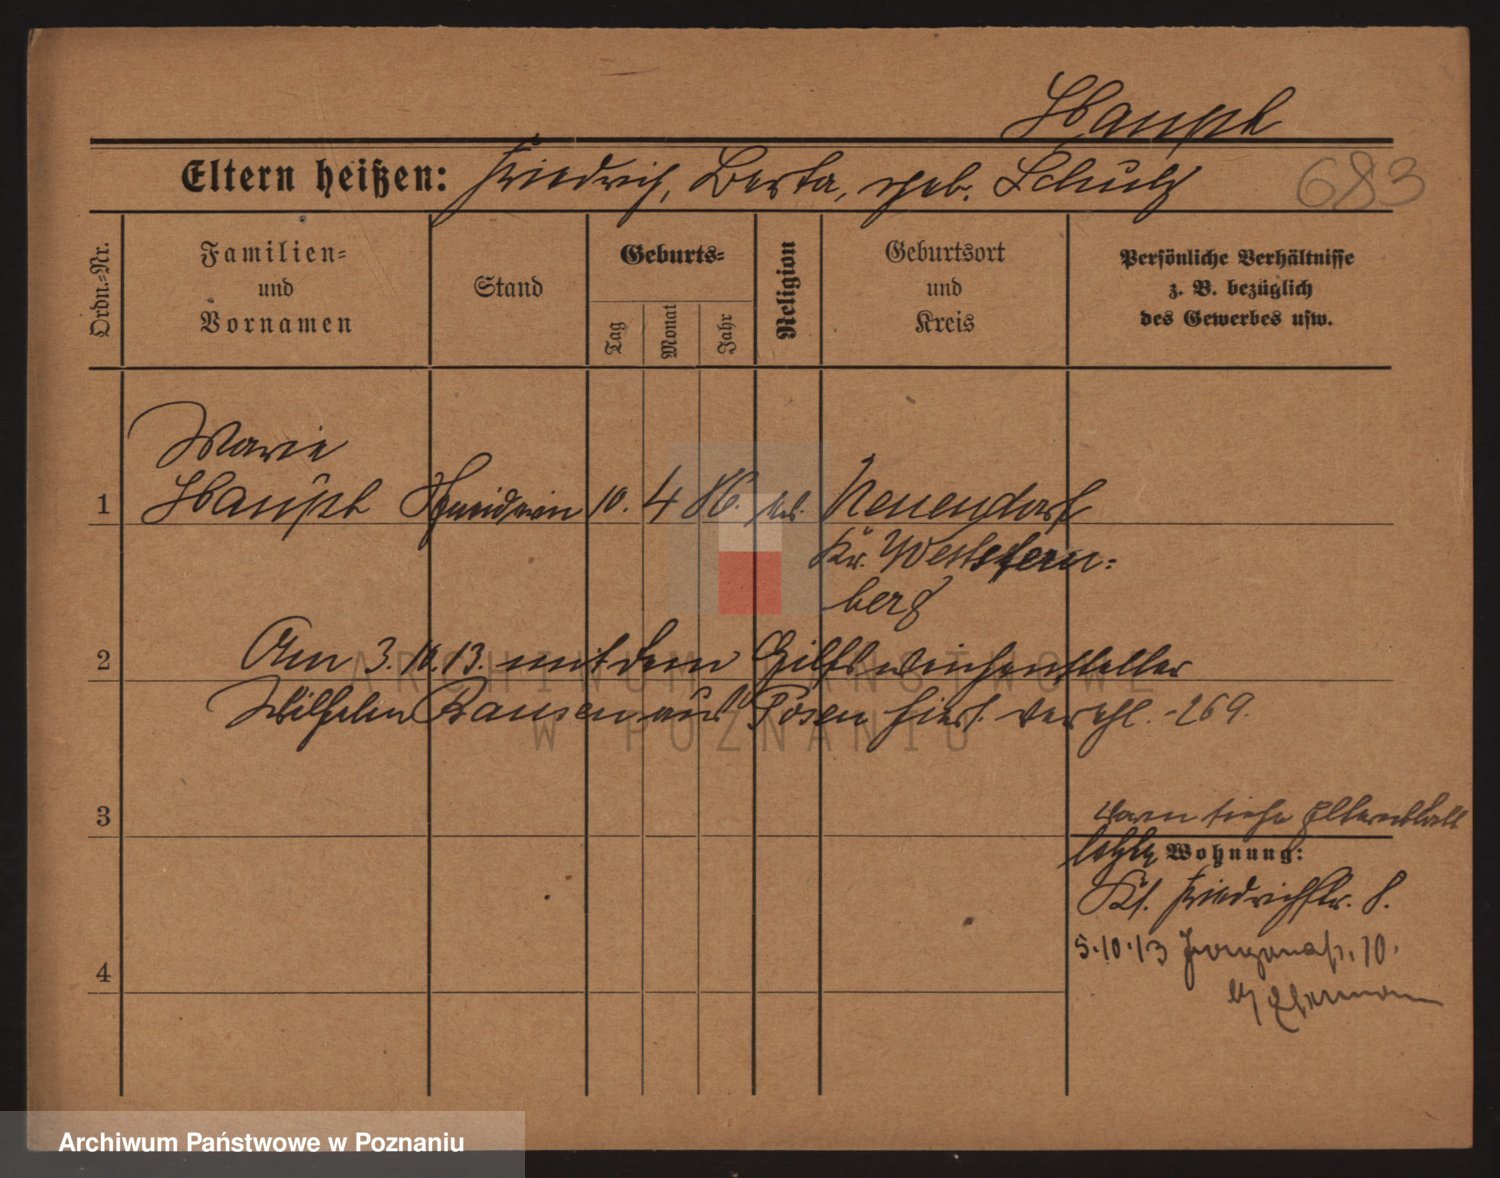 Haupt
Eltern heißen: Friedrich, Berta, geb. Schulz
683
Ordn.-Nr.
Familien-
und
Vornamen
Stand
Geburts-
Tag
Monat
Jahr
Religion
Geburtsort
und
Kreis
Persönliche Verhältnisse
z. B. bezüglich
des Gewerbes usw.
Marie
1 Haupt Schneiderin 10. 4 86. ev. Neuendorf
Kr. Weststern-
berg
2 Am 3.10.13. mit dem Hilfsweichensteller
Wilhelm aus Posen hier verehl. 269.
3
siehe
letzte Wohnung:
Friedrichstr. 8.
5.10.13 10.
4
b/
ARCHIWUM PAŃSTWOWE
W POZNANIU
Archiwum Państwowe w Poznaniu